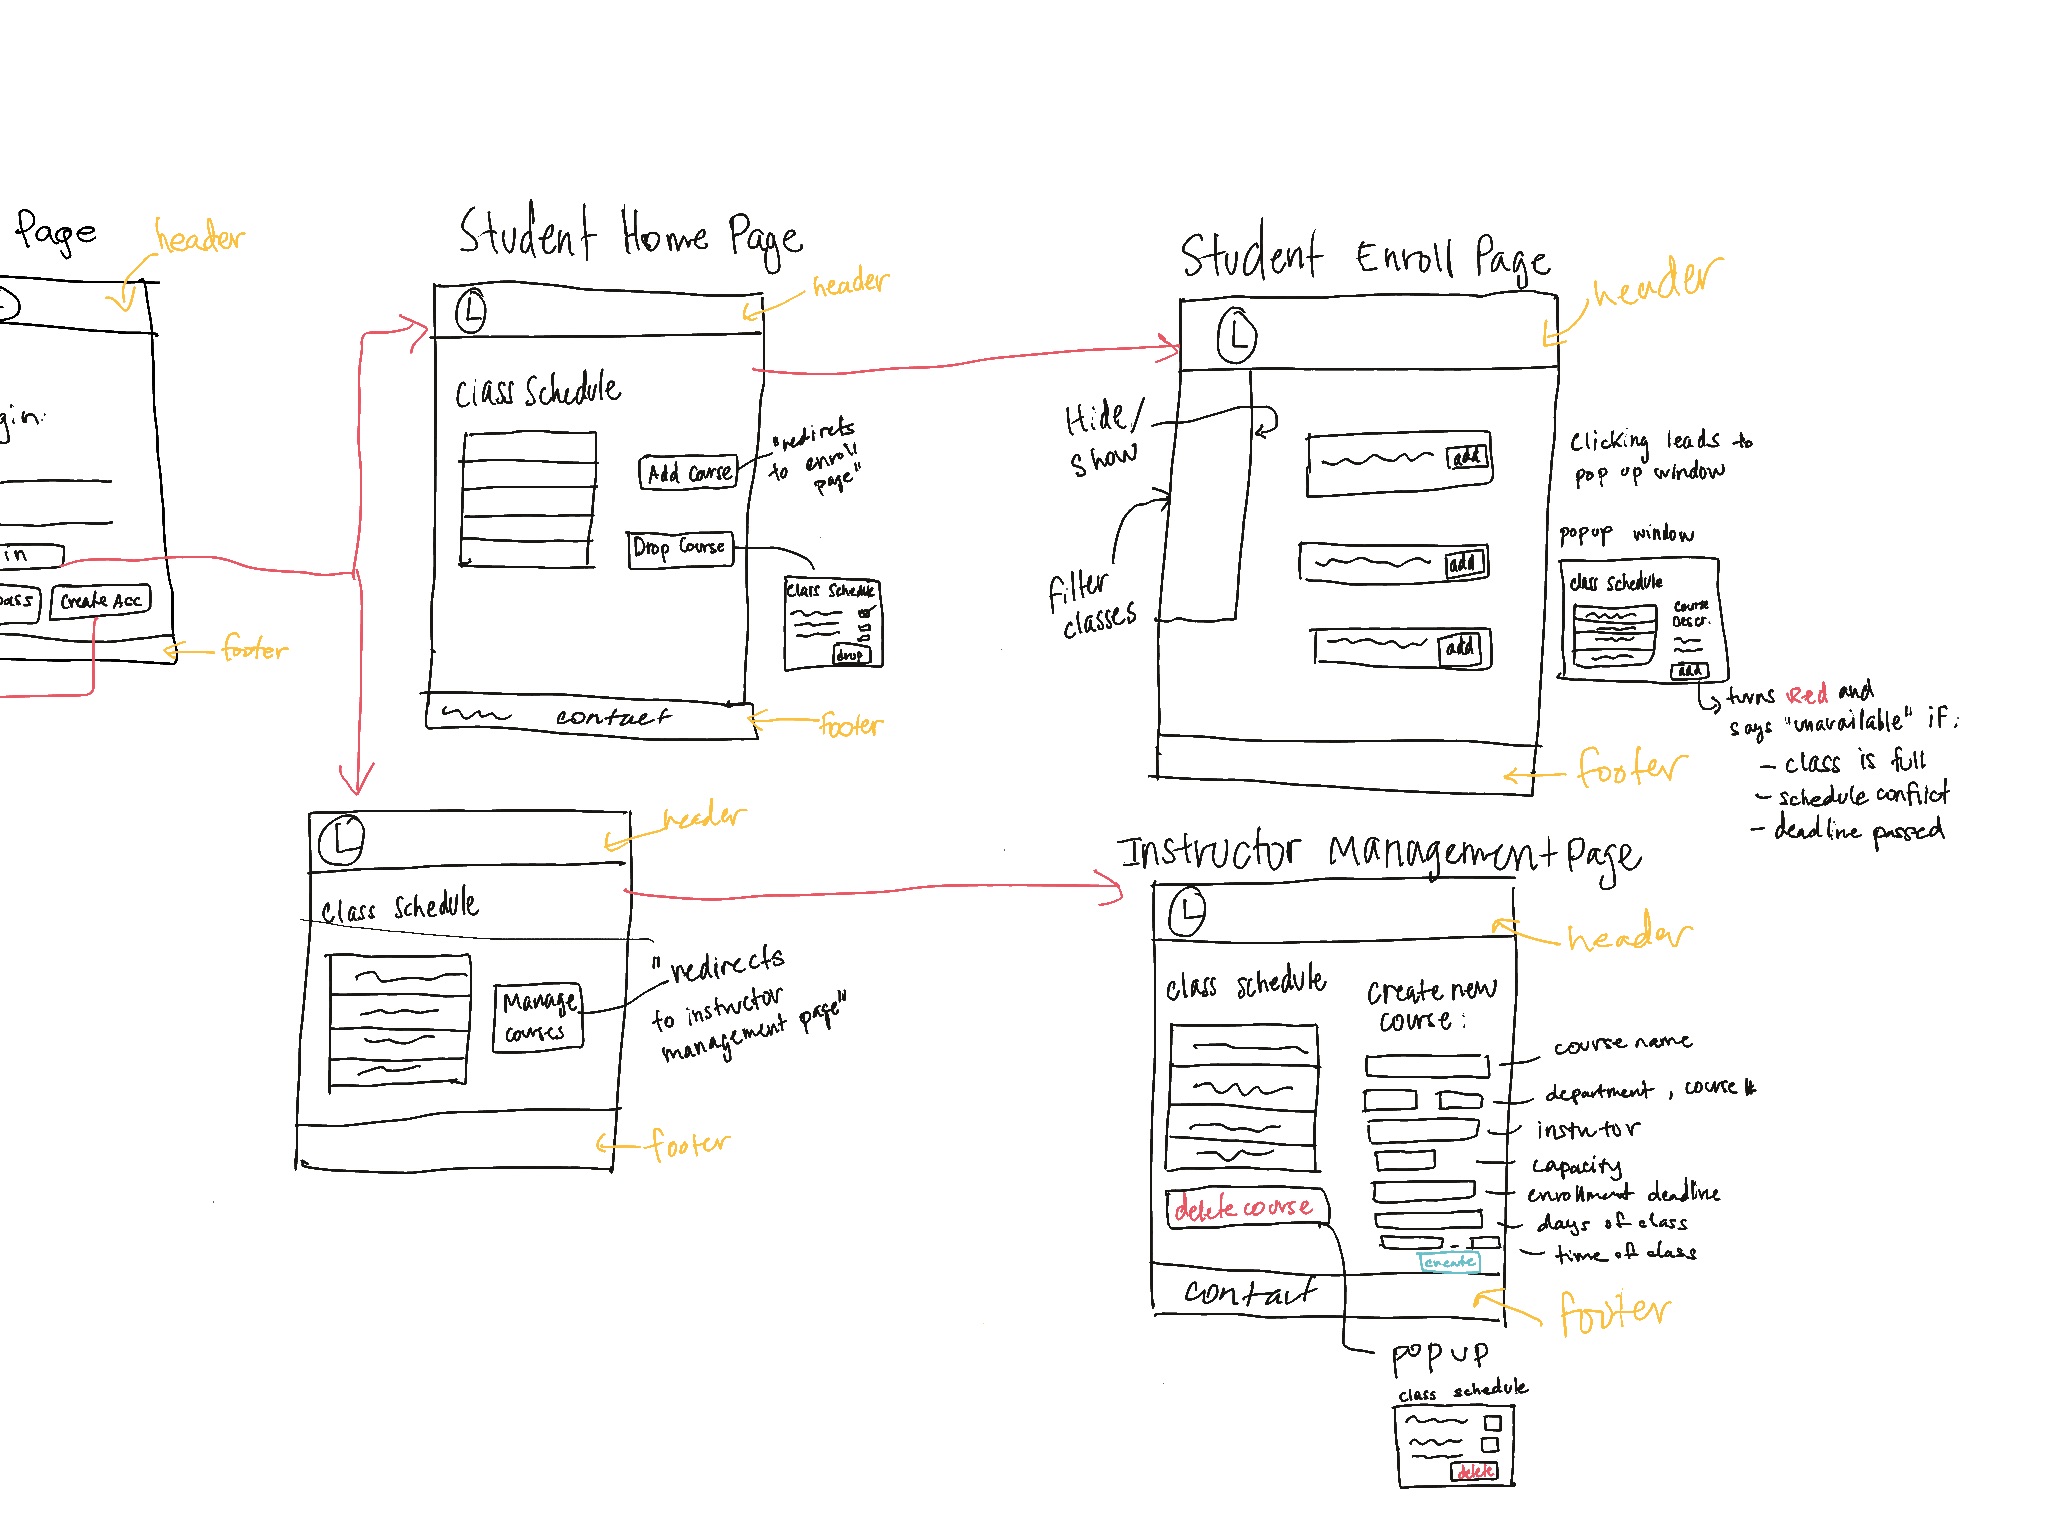 Page
header
gin:
in
pass
Create Acc
footer
Student Home Page
header
L
Class Schedule
Add Course
"redirets
to enroll
page"
Drop Course
Class Schedule
drop
contact
footer
Student Enroll Page
header
L
Hide/
show
filter
classes
add
add
add
Clicking leads to
pop up window
popup window
class schedule
course
Descr.
add
turns Red and
says "unavailable" if:
- class is full
- schedule conflict
- deadline passed
footer
header
L
class schedule
Manage
courses
"redirects
to instructor
management page"
footer
Instructor Management Page
L
header
class schedule
create new
course:
course name
department, course #
instrutor
capacity
enrollment deadline
days of class
time of class
delete course
create
contact
footer
popup
class schedule
delete